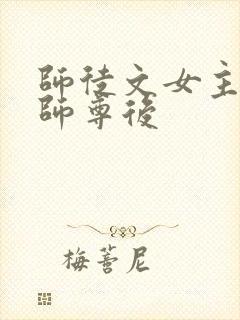 師徒文女主
師尊後
梅蓍尼